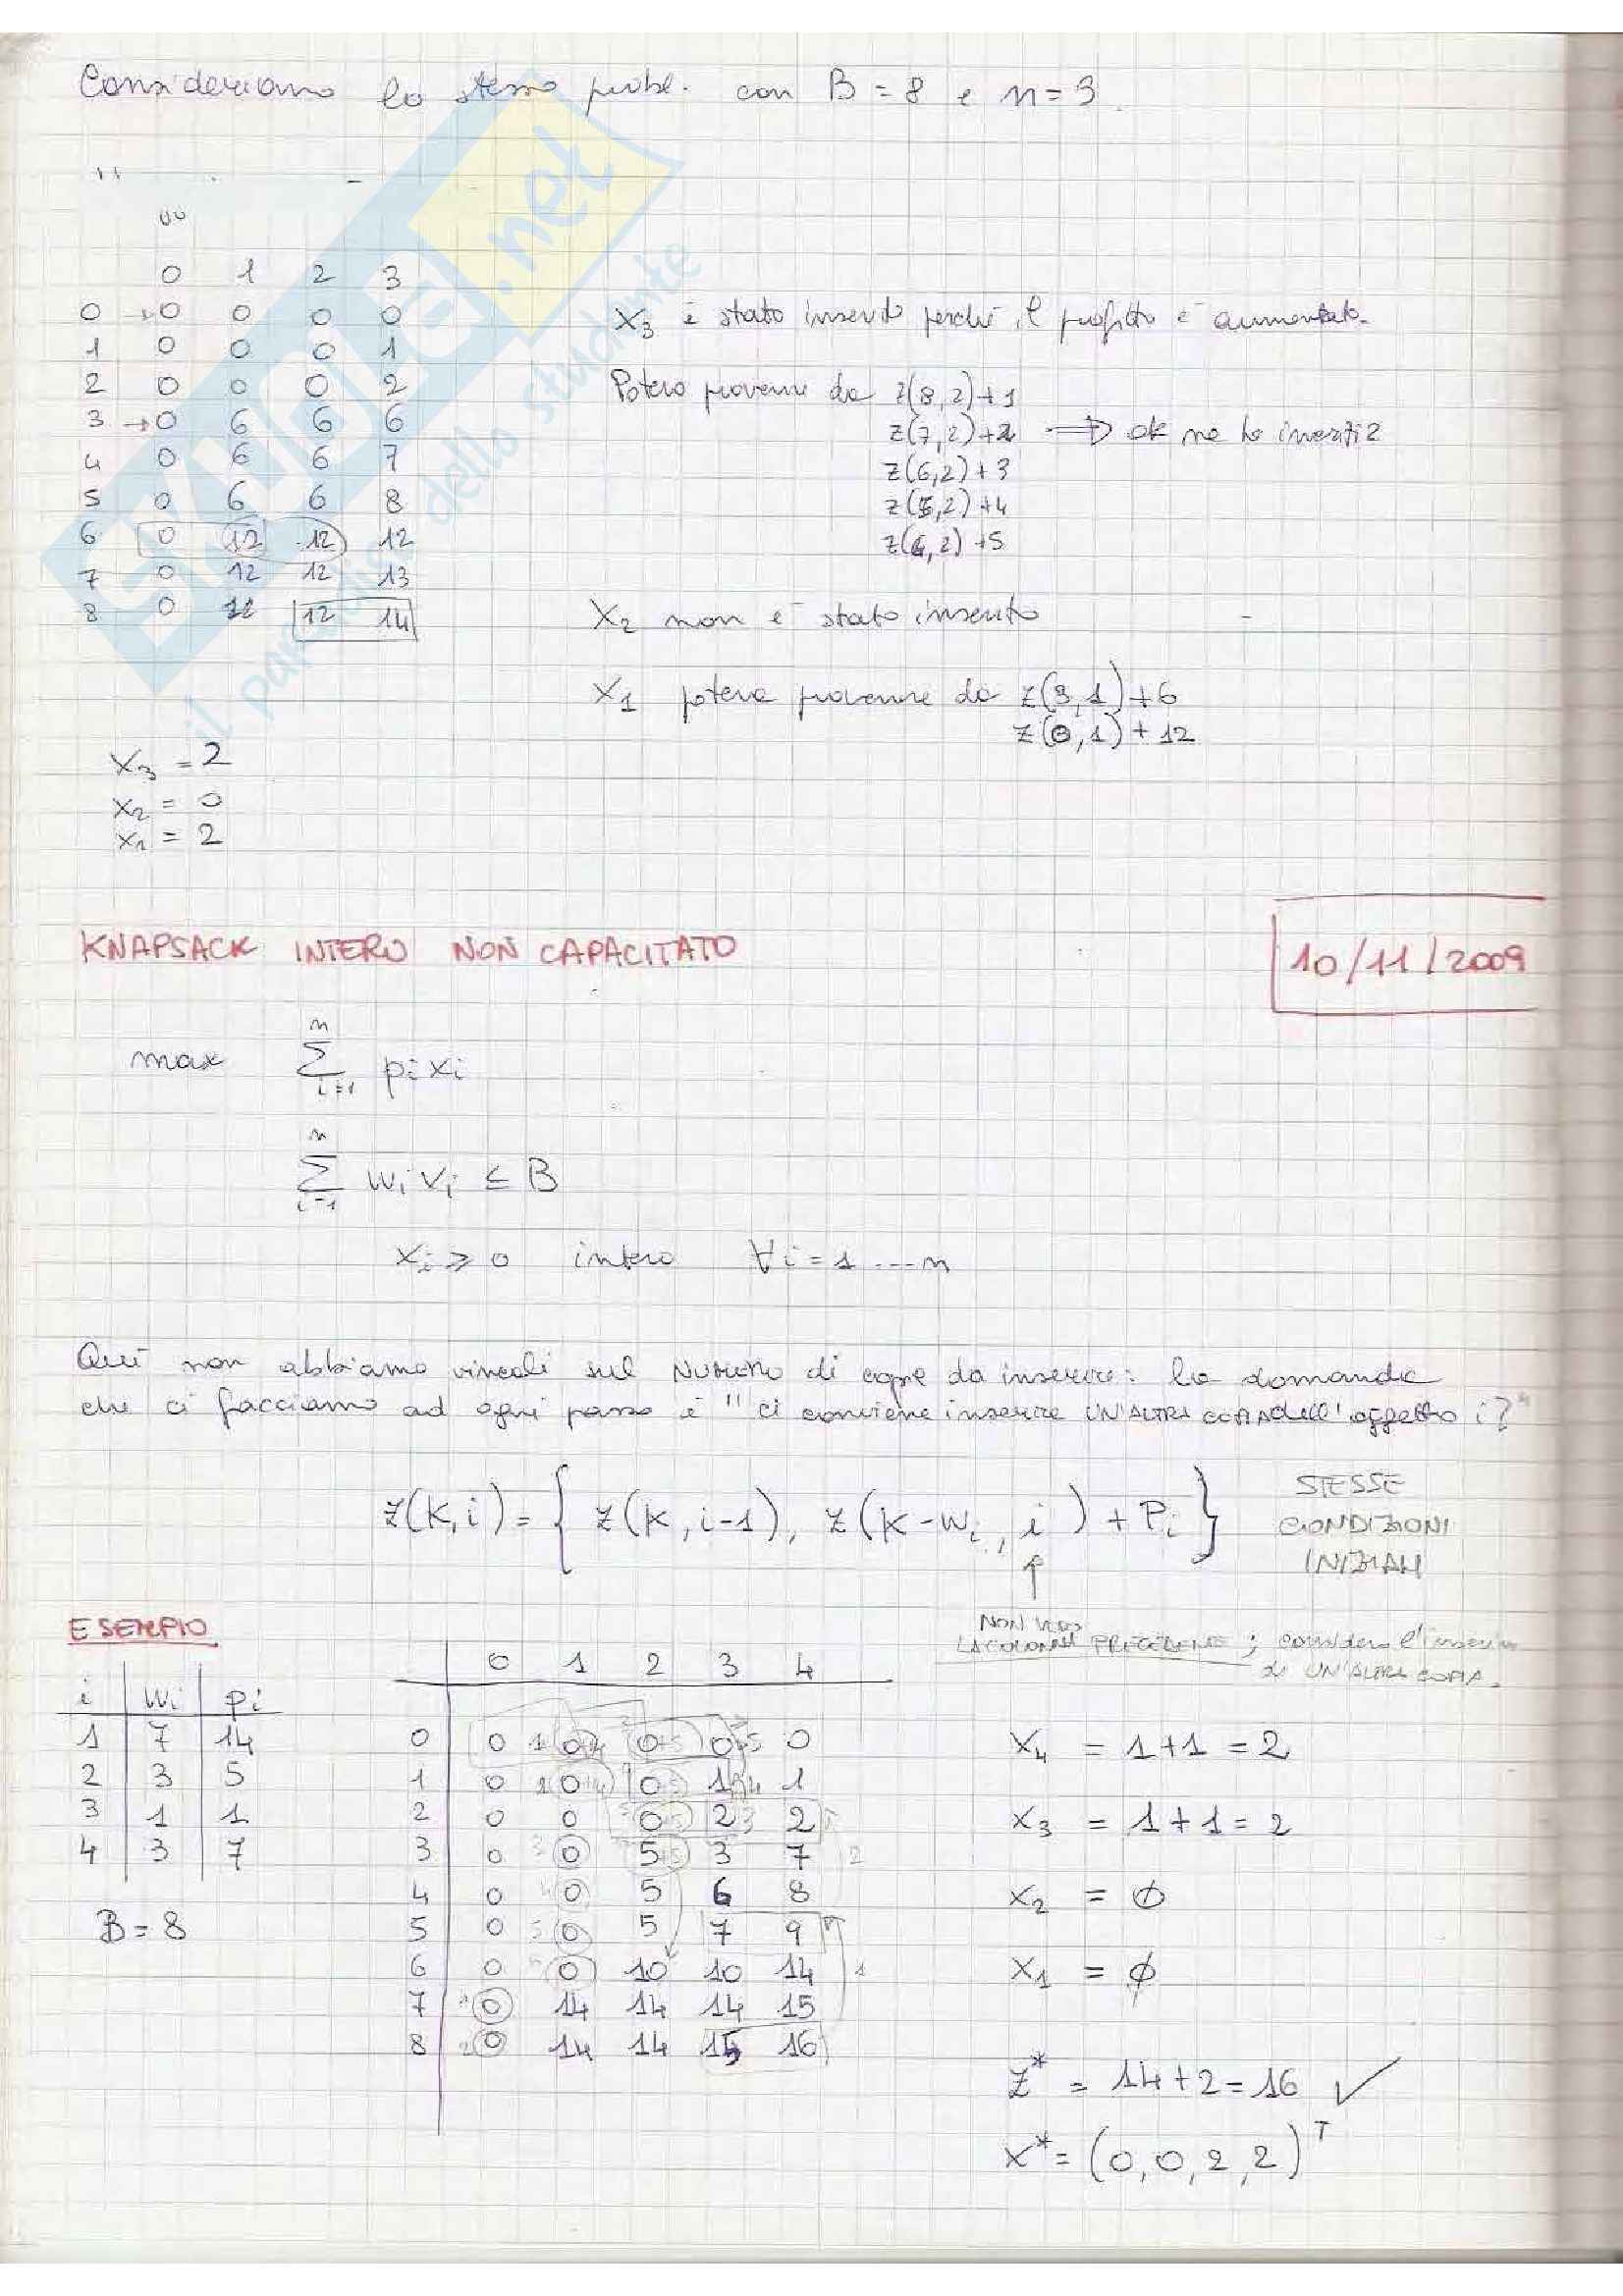 Consideriamo lo stesso probl. con B = 8 e n = 3.
0 1 2 3
0 → 0 0 0 0
1 0 0 0 1
2 0 0 0 2
3 → 0 6 6 6
4 0 6 6 7
5 0 6 6 8
6 0 12 12 12
7 0 12 12 13
8 0 12 12 14
X3 è stato inserito perché il profitto è aumentato.
Poteva provenire da z(8,2)+1
z(7,2)+2 ⇒ ok ne ho inseriti 2
z(6,2)+3
z(5,2)+4
z(4,2)+5
X2 non è stato inserito
X1 poteva provenire da z(3,1)+6
z(0,1)+12
X3 = 2
X2 = 0
X1 = 2
KNAPSACK INTERO NON CAPACITATO
10/11/2009
max Σ_{i=1}^{n} pi xi
Σ_{i=1}^{n} wi xi ≤ B
xi ≥ 0 intero ∀i = 1 ... n
Qui non abbiamo vincoli sul NUMERO di copie da inserire: la domanda
che ci facciamo ad ogni passo è "ci conviene inserire UN'ALTRA COPIA dell'oggetto i?"
z(k,i) = { z(k,i-1), z(k-wi, i) + Pi }
STESSE
CONDIZIONI
INIZIALI
↑
NON VEDO
LA COLONNA PRECEDENTE; considero l'inserim
di UN'ALTRA COPIA.
ESEMPIO
i wi pi
1 7 14
2 3 5
3 1 1
4 3 7
B = 8
0 1 2 3 4
0 0 0 0 0 0
1 0 0 0 1 1
2 0 0 0 2 2
3 0 0 5 3 7
4 0 0 5 6 8
5 0 0 5 7 9
6 0 0 10 10 14
7 0 14 14 14 15
8 0 14 14 15 16
X4 = 1+1 = 2
X3 = 1+1 = 2
X2 = ∅
X1 = ∅
z* = 14+2 = 16 ✓
x* = (0,0,2,2)^T
SKUOLA.net
il paradiso dello studente